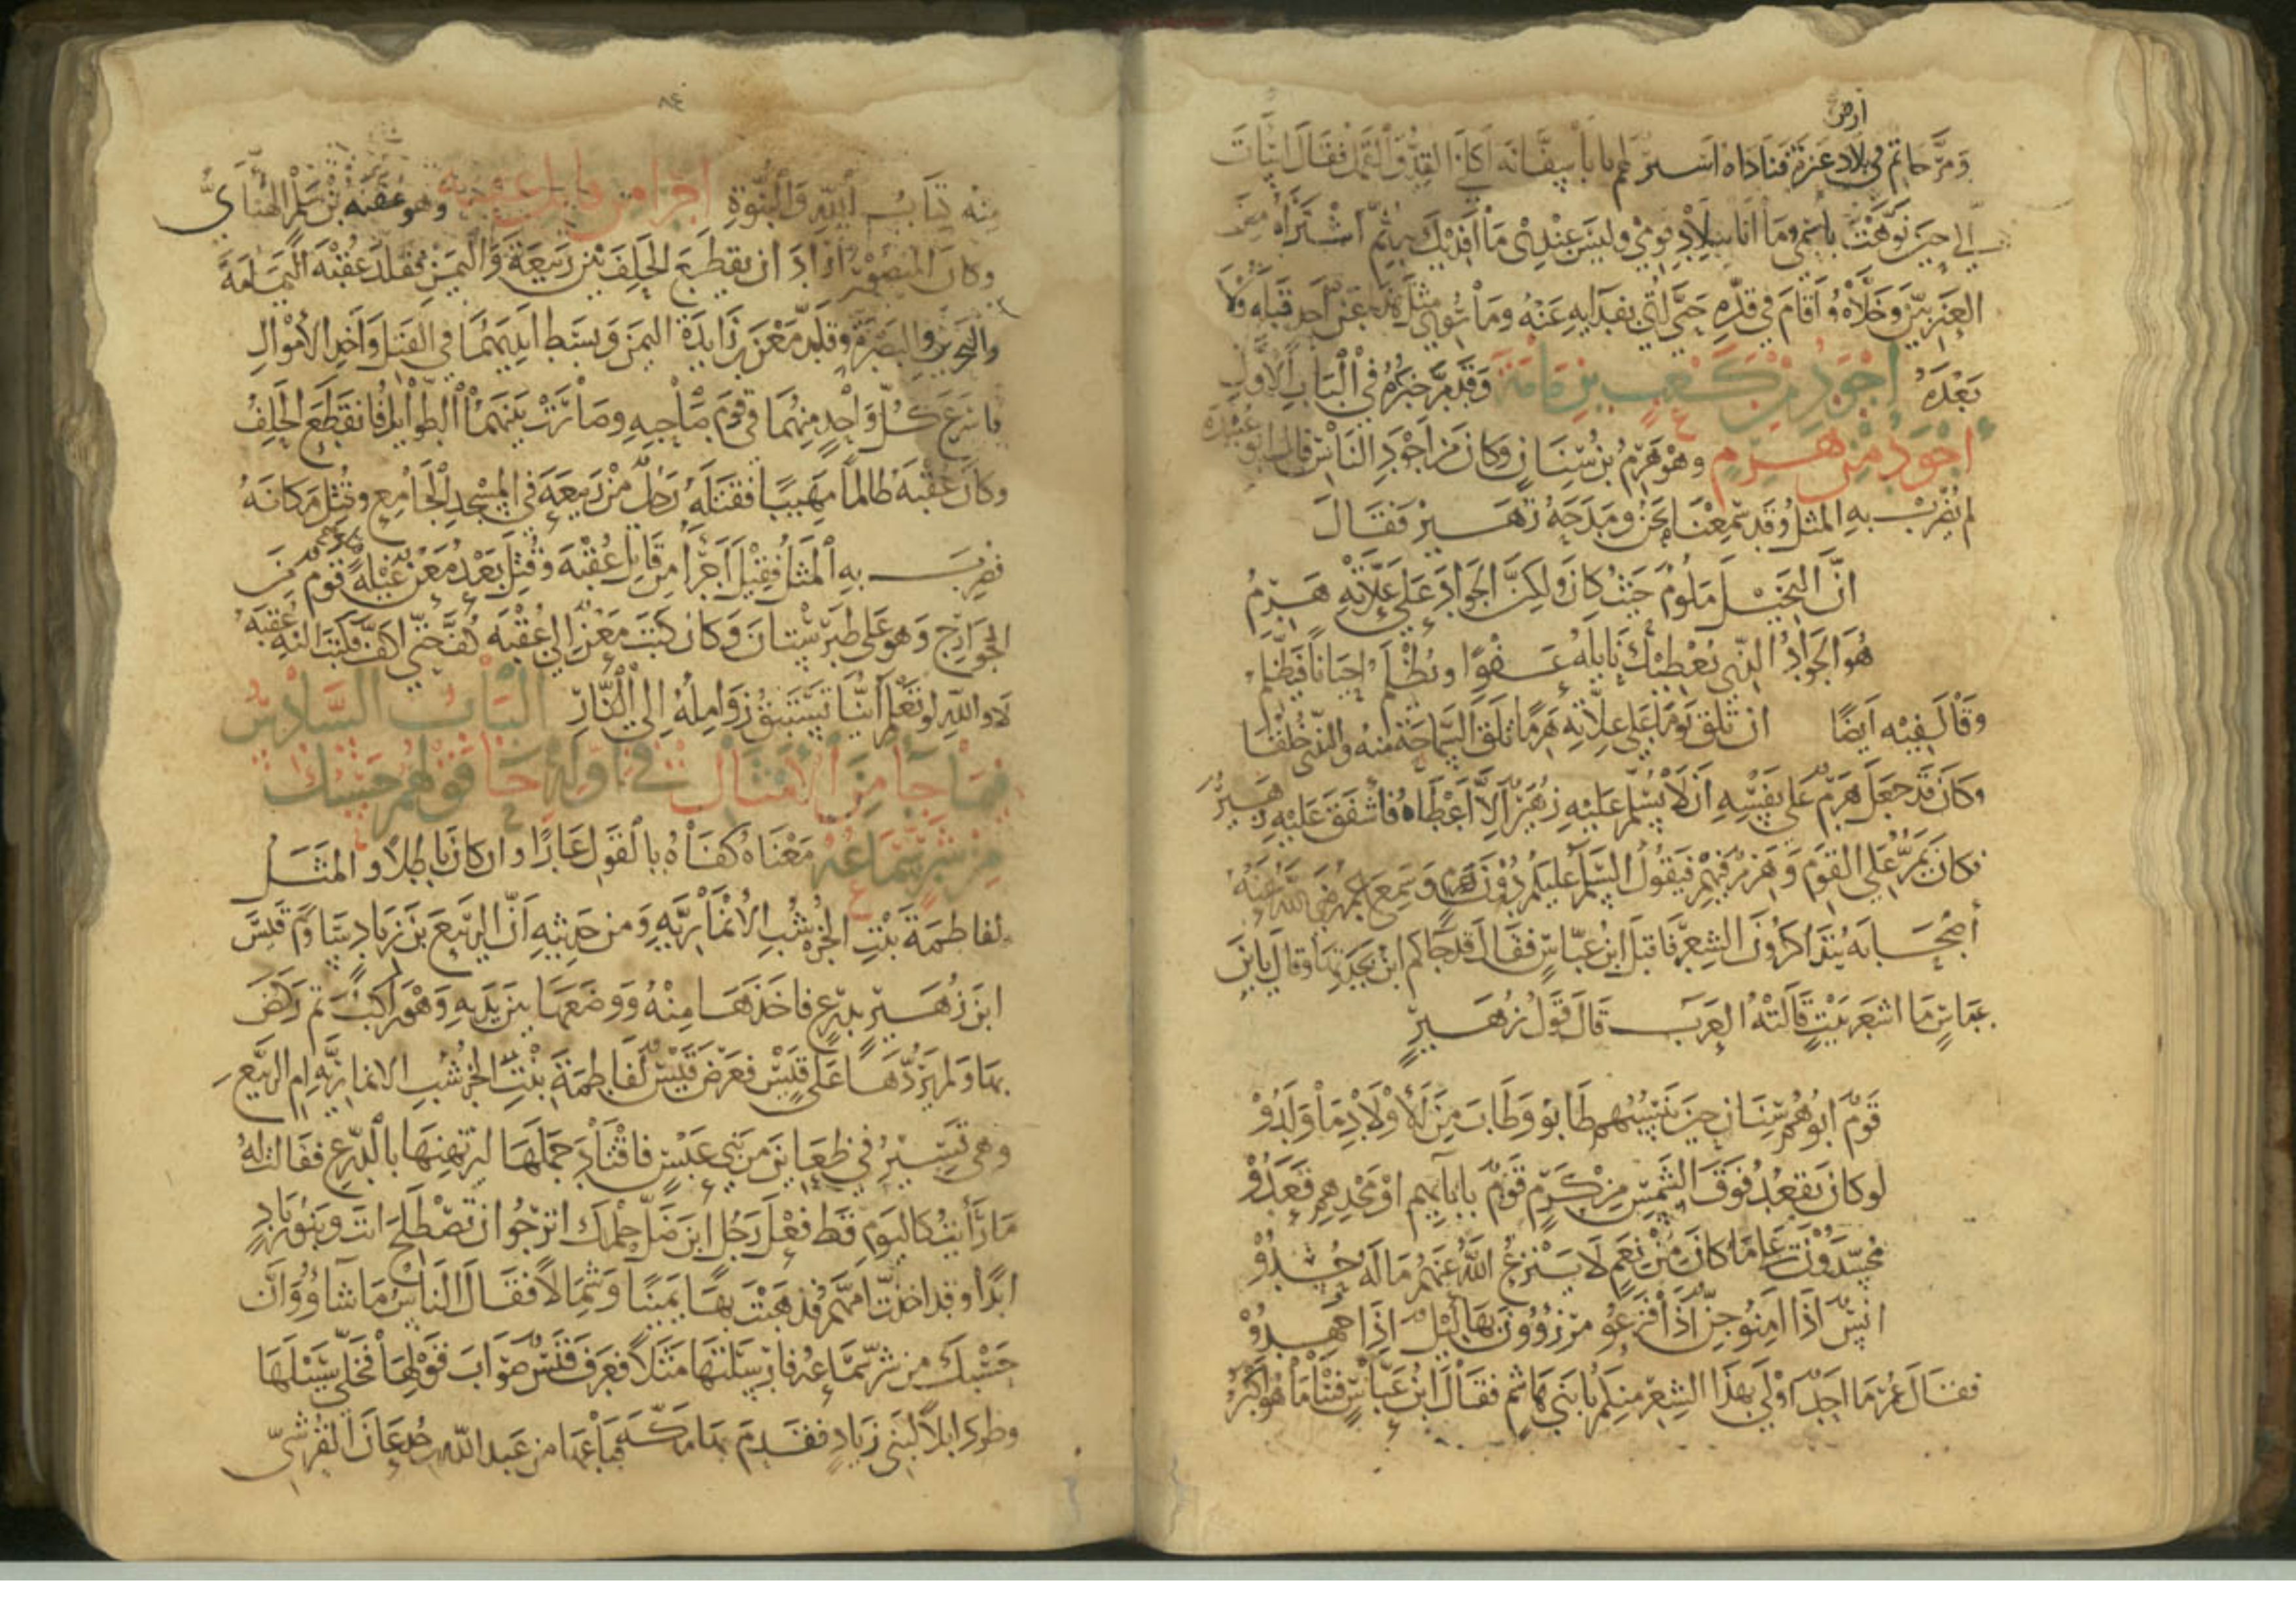 أرض
ومرّ حاتم في بلاد عنزة فناداه اسير لهم يابا سفانة اكلني القد والقمل فقال اسات
الي حين نوهت باسمي وما انا ببلاد قومي وليس عندي ما افديك به ثم اشتراه من
العنزيين وخلاه واقام في قده حتى اتي بفدايه عنه وما سوي مثل هذا عن احد قبله ولا
بعده اجود من كعب بن مامة وقد مر خبره في الباب الاول
اجود من هرم وهو هرم بن سنان وكان من اجود الناس قال ابو عبيدة
لم يضرب به المثل وقد سمعنا نحن ومدحه زهير فقال
ان البخيل ملوم حيث كان ولكن الجواد على علاته هرم
هو الجواد الذي يعطيك نايله عفوا ويظلم احيانا فيظلم
وقال فيه ايضا ان تلق يوما على علاته هرما تلق السماحة منه والندى خلقا
وكان قد جعل هرم على نفسه ان لا يسلم عليه زهير الا اعطاه فاشفق عليه زهير
فكان يمر على القوم وهرم فيهم فيقول السلم عليكم دون هرم وسمع عمر رضي الله عنه
أصحابه يتذاكرون الشعر فاقبل ابن عباس فقال قد جاكم ابن بجدتها وقال يا بن
عباس ما اشعر بيت قالته العرب قال قول زهير
قوم ابوهم سنان حين ينسبهم طابو وطاب من الاولاد ما ولدو
لو كان يقعد فوق الشمس من كرم قوم بابايهم او مجدهم قعدو
محسدون على ما كان من نعم لا ينزع الله عنهم ما له حسدو
انس اذا امنو جن اذا فزعو مرزوون بهاليل اذا جهدو
فقال عمر ما اجد اولى بهذا الشعر منكم يا بني هاشم فقال ابن عباس فثنا ما هو اكبر
٨٤
منه كتاب الله والنبوة اجرا من قاتل عقبة وهو عقبة بن سلم الهنائي
وكان المنصور اراد ان يقطع الحلف بين ربيعة واليمن فقلد عقبة اليمامة
والبحرين والبصرة وقلد معن بن زايدة اليمن وبسط ايديهما في القتل واخذ الاموال
فاسرع كل واحد منهما في قوم صاحبه وصارت بينهما الطوايل فانقطع الحلف
وكان عقبة ظالما مهيبا فقتله رجل من ربيعة في المسجد الجامع وقتل مكانه
فضرب به المثل فقيل اجرأ من قاتل عقبة وقتل بعد معن غيلة قوم من
الخوارج وهو على طبرستان وكان كتب معن الى عقبة كف حتى اكف فكتب اليه عقبة
لا والله لو تعلم اينا تستبق زوامله الى النار الباب السادس
فيما جا من الامثال في اوله حا قولهم حسبك
من شر سماعه معناه كفاه بالقول عارا وان كان باطلا والمثل
لفاطمة بنت الخرشب الانمارية ومن حديثه ان الربيع بن زياد ساوم قيس
ابن زهير بدرع فاخذها منه ووضعها بين يديه وهو راكب ثم ركض
بها ولم يردها على قيس فعرض قيس لفاطمة بنت الخرشب الانمارية ام الربيع
وهي تسير في ظعاين من بني عبس فاقتاد جملها ليرتهنها بالدرع فقالت له
ما رأيت كاليوم قط فعل رجل اين ضل حلمك اترجو ان تصطلح انت وبنو زياد
ابدا وقد اخذت امهم فذهبت بها يمينا وشمالا فقال الناس ما شاؤو وان
حسبك من شر سماعه فارسلتها مثلا فعرف قيس صواب قولها فخلى سبيلها
وطرد ابلا لبني زياد فقدم بها مكة فباعها من عبد الله بن جدعان القرشي